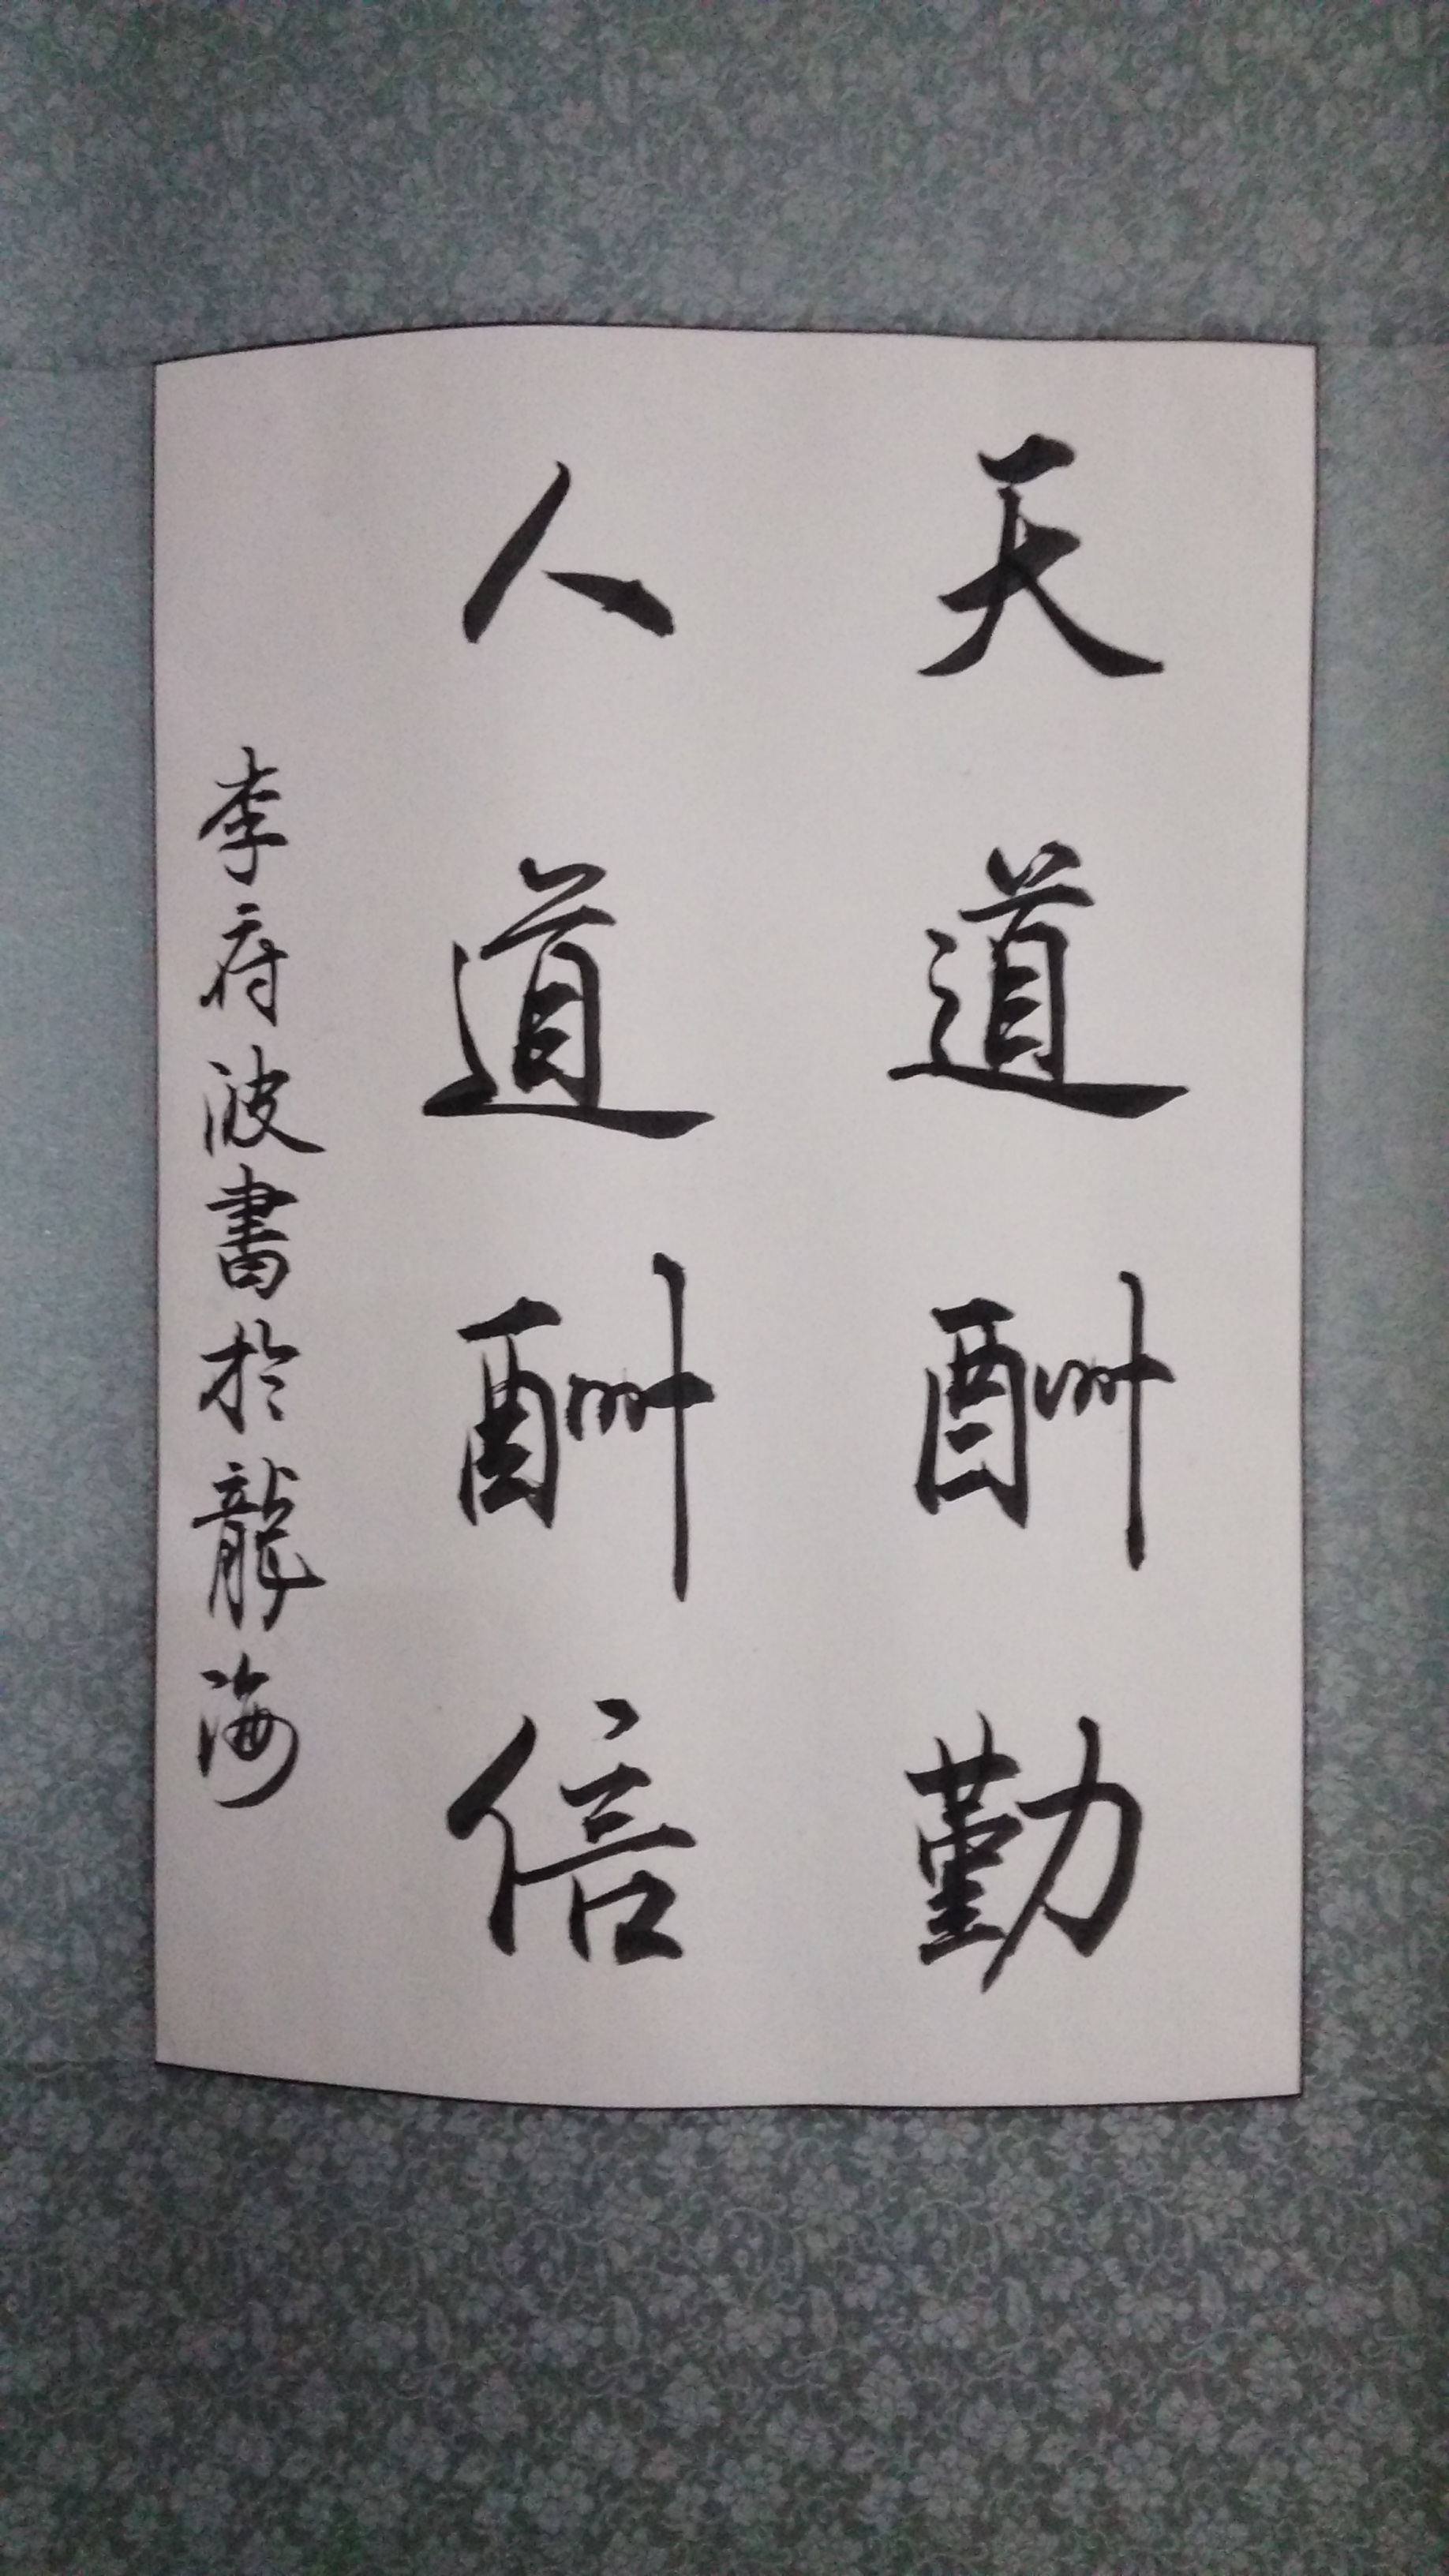 天道酬勤
人道酬信
李府波書於龍海